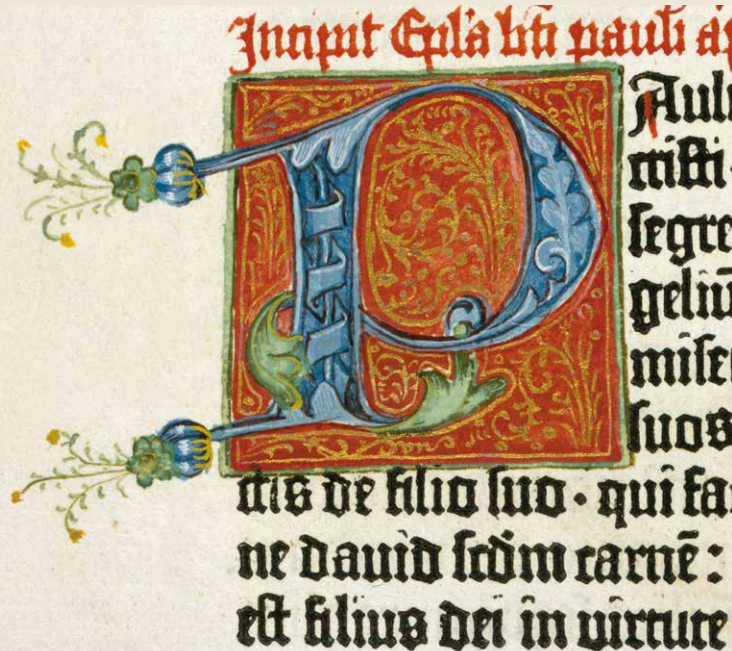 Incipit Epl'a bti pauli ap
P
Aulu
cristi ·
segre
geliū
mise
suos
ctis de filio suo · qui fa
ne dauid scd̄m carnē :
est filius dei in uirtute